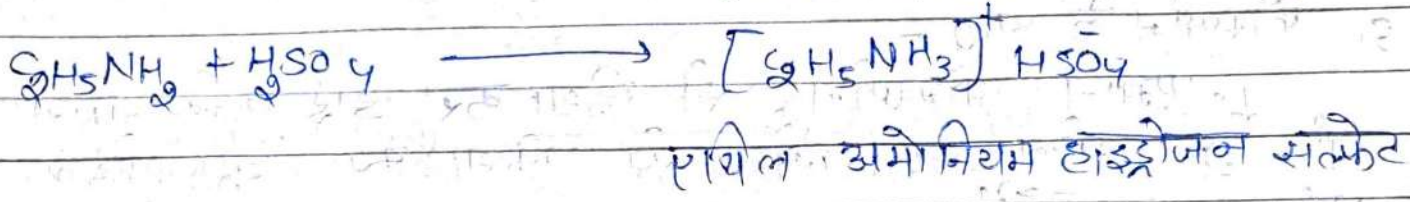 C₂H₅NH₂ + H₂SO₄ ⟶ [C₂H₅NH₃]⁺ HSO₄⁻
एथिल अमोनियम हाइड्रोजन सल्फेट